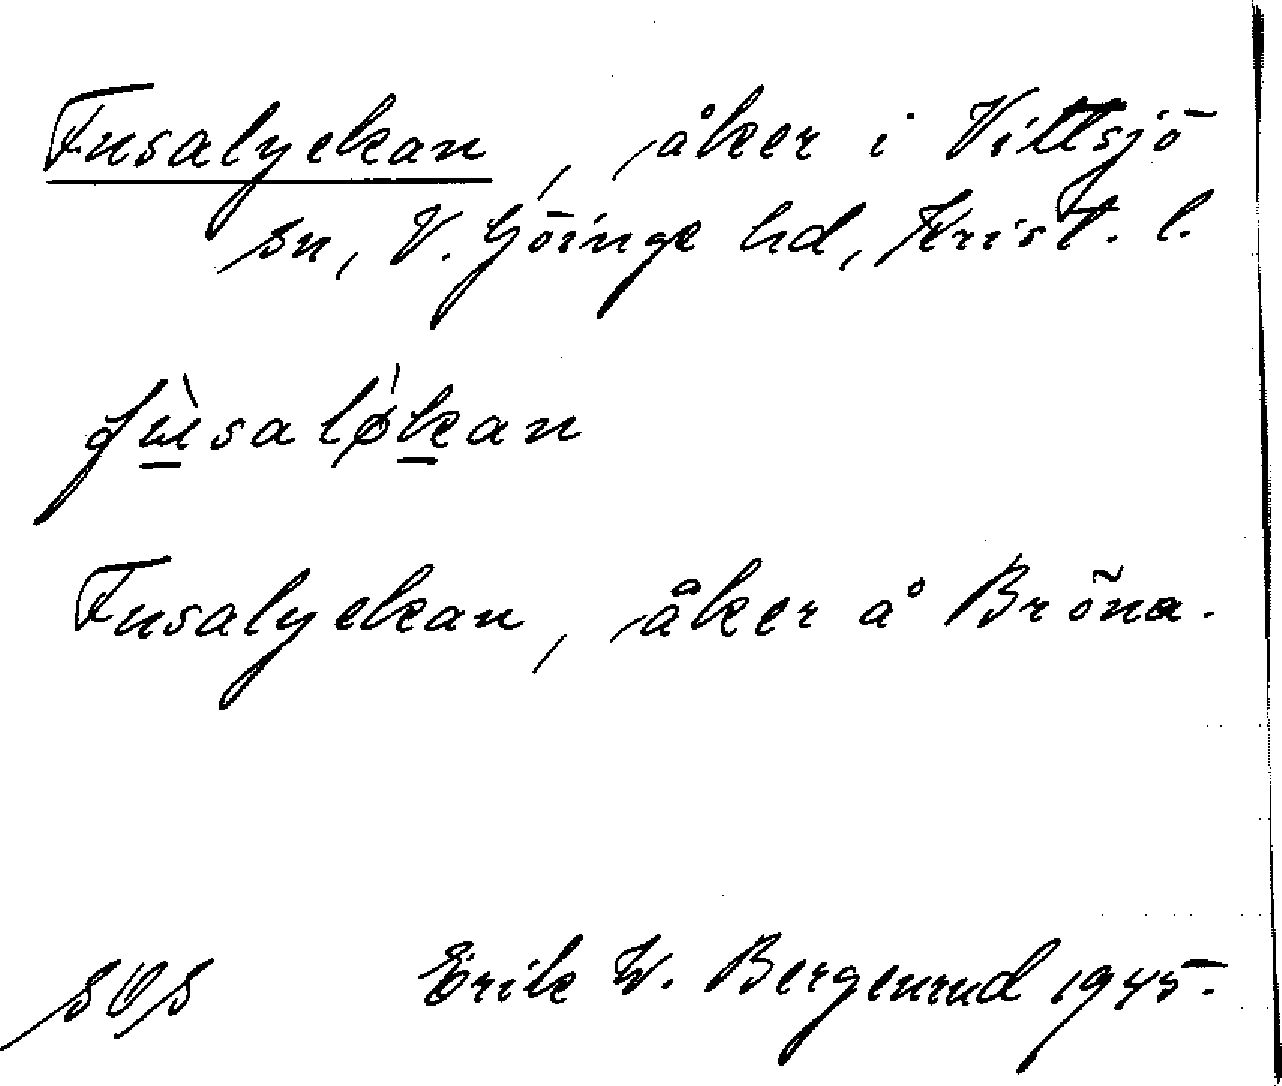 Fusalyckan, åker i Vittsjö
sn, V. Göinge hd, Krist. l.
fɯ̀saløkan
Fusalyckan, åker å Bröna.
SOS Erik W. Bergenrud 1945.